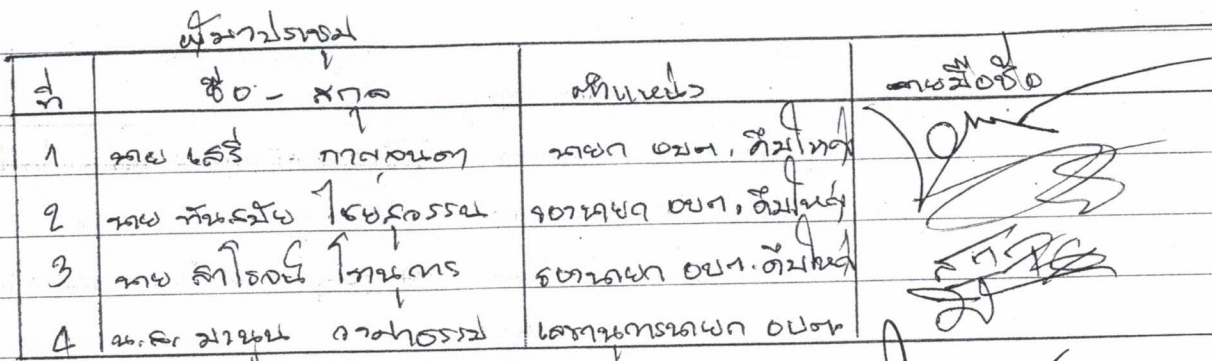 ผู้มาประชุม
ที่ ชื่อ - สกุล ตำแหน่ง ลายมือชื่อ
1 นาย เสรี นายก อบต. คึมใหญ่
2 นาย ทันสมัย ไชยสุวรรณ รองนายก อบต. คึมใหญ่
3 นาย สาโรจน์ โทนุการ รองนายก อบต. คึมใหญ่
4 น.ส. เลขานุการนายก อบต.